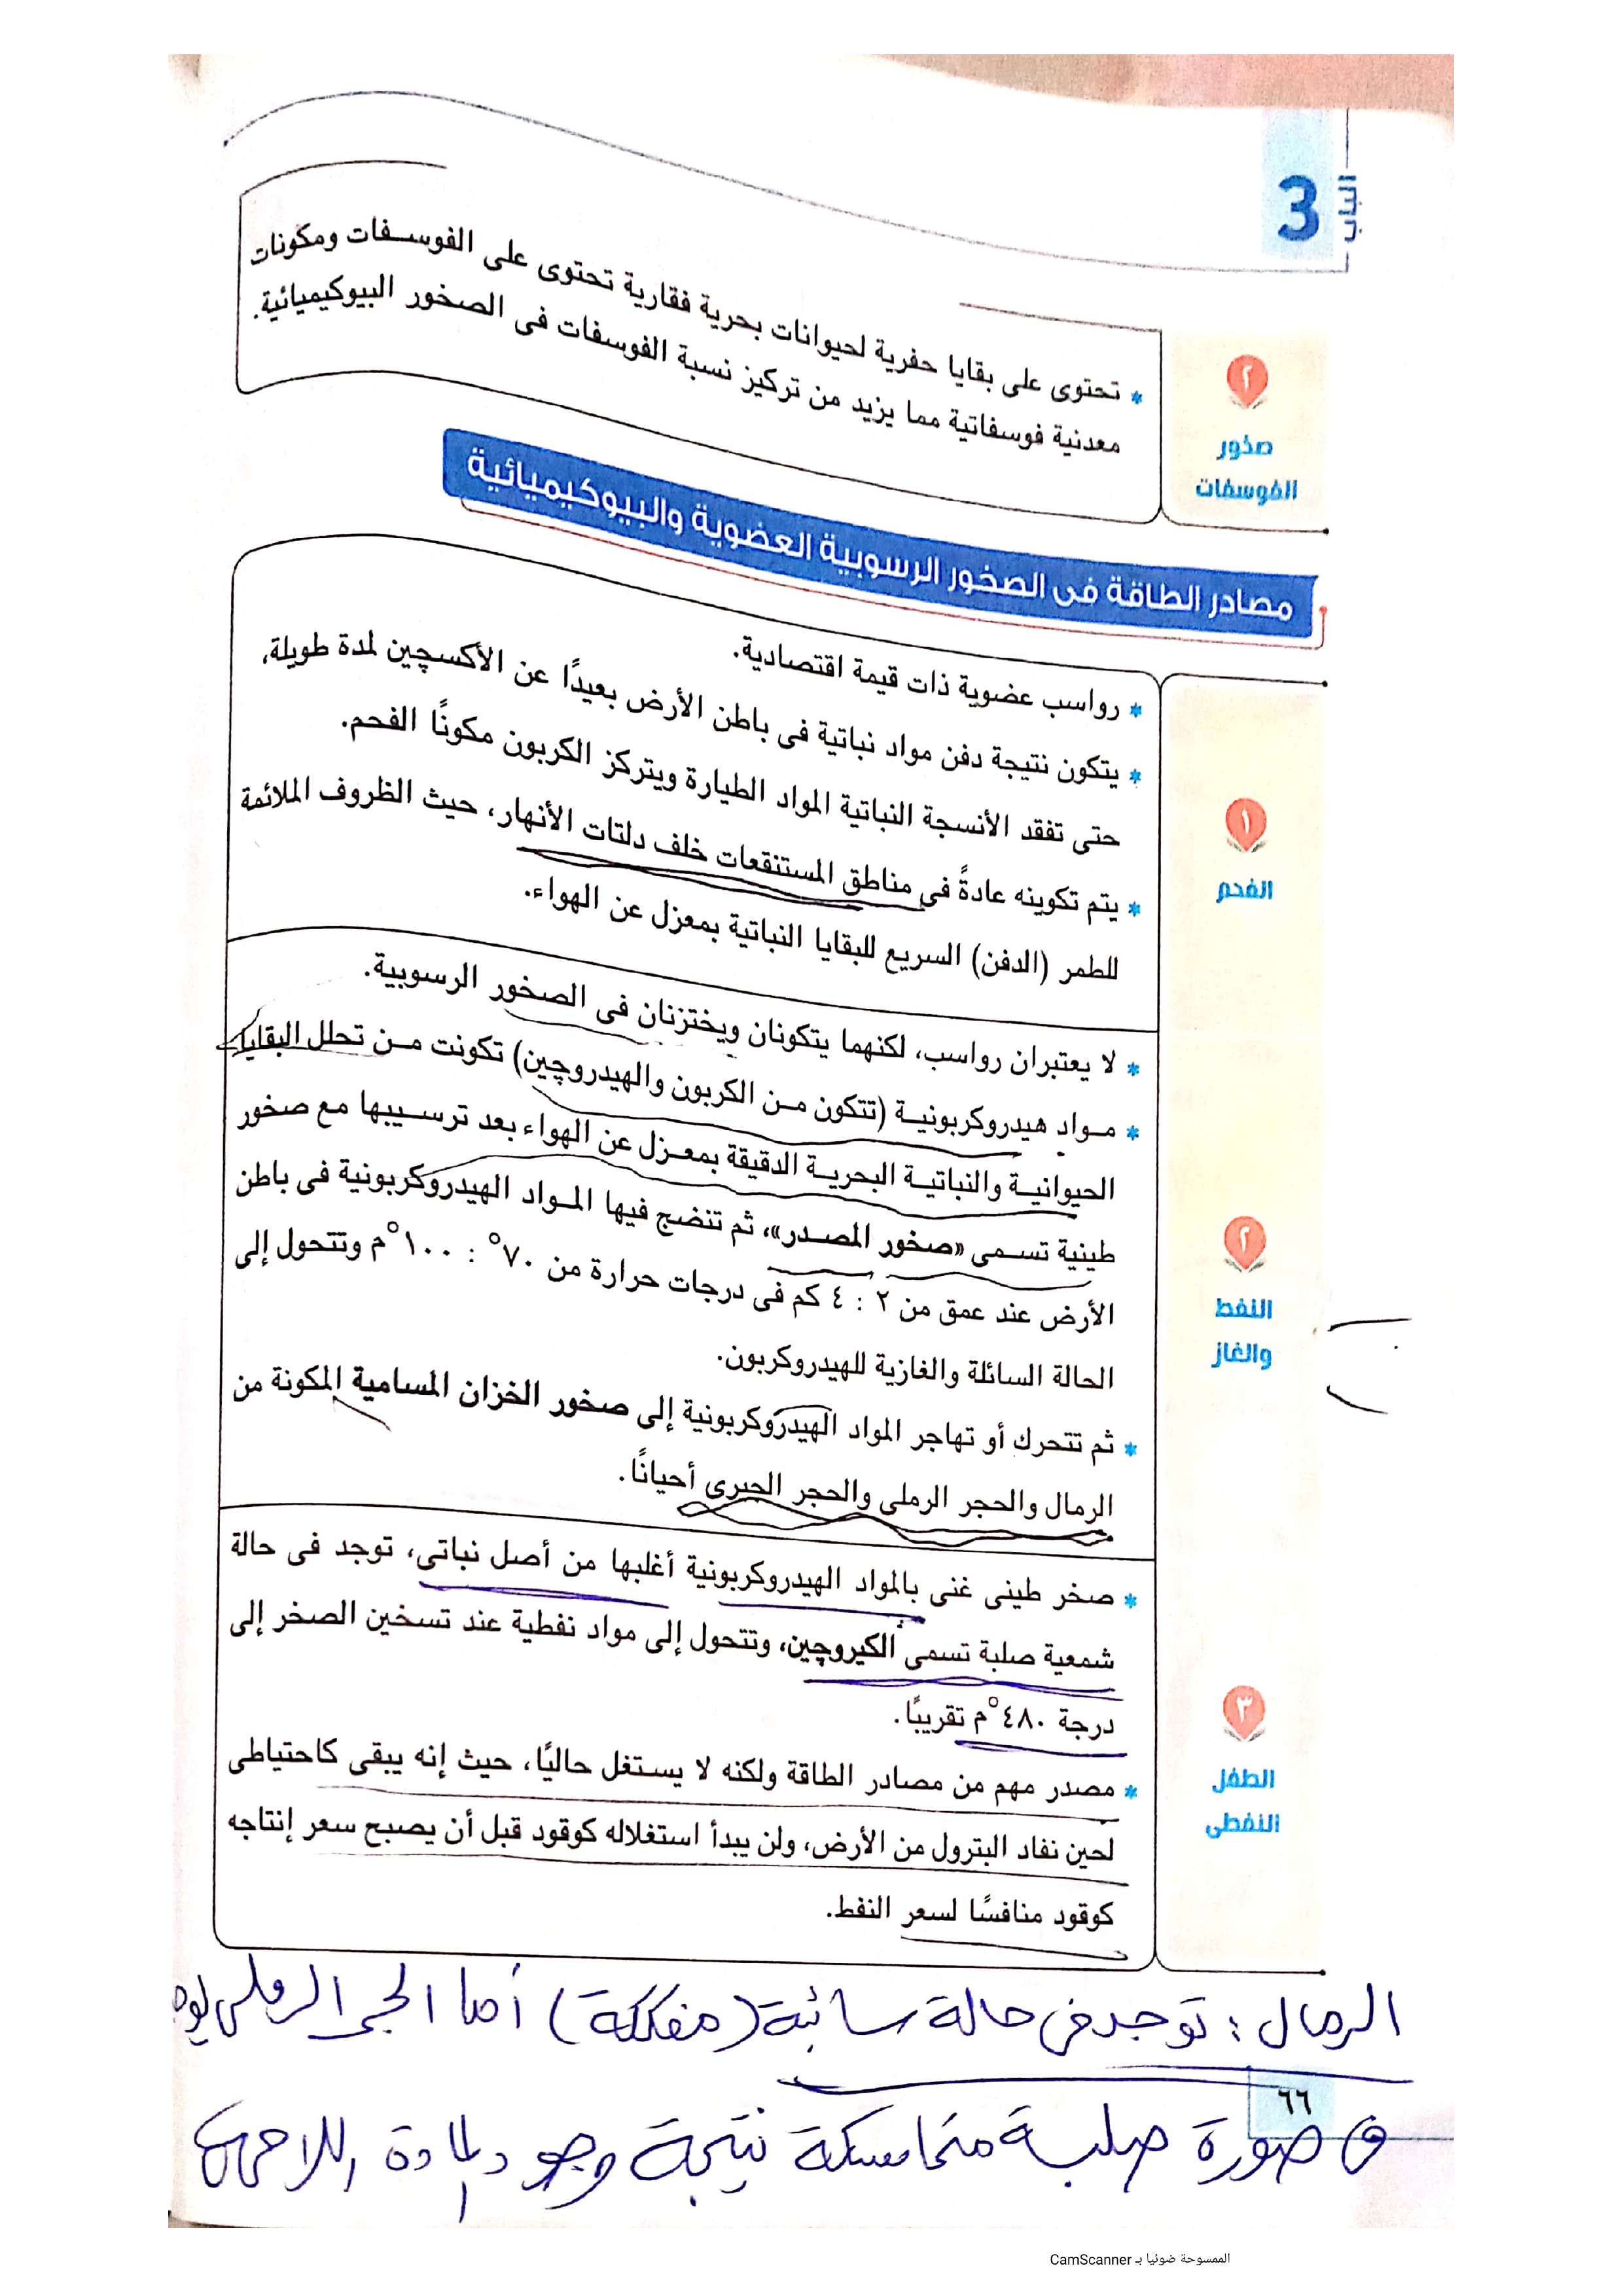 الباب
3
٢
صخور
الفوسفات
* تحتوى على بقايا حفرية لحيوانات بحرية فقارية تحتوى على الفوسفات ومكونات
معدنية فوسفاتية مما يزيد من تركيز نسبة الفوسفات فى الصخور البيوكيميائية.
مصادر الطاقة فى الصخور الرسوبية العضوية والبيوكيميائية
١
الفحم
* رواسب عضوية ذات قيمة اقتصادية.
* يتكون نتيجة دفن مواد نباتية فى باطن الأرض بعيدًا عن الأكسچين لمدة طويلة،
حتى تفقد الأنسجة النباتية المواد الطيارة ويتركز الكربون مكونًا الفحم.
* يتم تكوينه عادةً فى مناطق المستنقعات خلف دلتات الأنهار، حيث الظروف الملائمة
للطمر (الدفن) السريع للبقايا النباتية بمعزل عن الهواء.
٢
النفط
والغاز
* لا يعتبران رواسب، لكنهما يتكونان ويختزنان فى الصخور الرسوبية.
* مواد هيدروكربونية (تتكون من الكربون والهيدروچين) تكونت من تحلل البقايا
الحيوانية والنباتية البحرية الدقيقة بمعزل عن الهواء بعد ترسيبها مع صخور
طينية تسمى «صخور المصدر»، ثم تنضج فيها المواد الهيدروكربونية فى باطن
الأرض عند عمق من ٢ : ٤ كم فى درجات حرارة من ٧٠° : ١٠٠°م وتتحول إلى
الحالة السائلة والغازية للهيدروكربون.
* ثم تتحرك أو تهاجر المواد الهيدروكربونية إلى صخور الخزان المسامية المكونة من
الرمال والحجر الرملى والحجر الجيرى أحيانًا.
٣
الطفل
النفطى
* صخر طينى غنى بالمواد الهيدروكربونية أغلبها من أصل نباتى، توجد فى حالة
شمعية صلبة تسمى الكيروچين، وتتحول إلى مواد نفطية عند تسخين الصخر إلى
درجة ٤٨٠°م تقريبًا.
* مصدر مهم من مصادر الطاقة ولكنه لا يستغل حاليًا، حيث إنه يبقى كاحتياطى
لحين نفاد البترول من الأرض، ولن يبدأ استغلاله كوقود قبل أن يصبح سعر إنتاجه
كوقود منافسًا لسعر النفط.
الرمال : توجد فى حالة سائبة (مفككة) أما الحجر الرملى
٦٦
فى صورة صلبة متماسكة نتيجة وجود المادة اللاحمة
الممسوحة ضوئيا بـ CamScanner